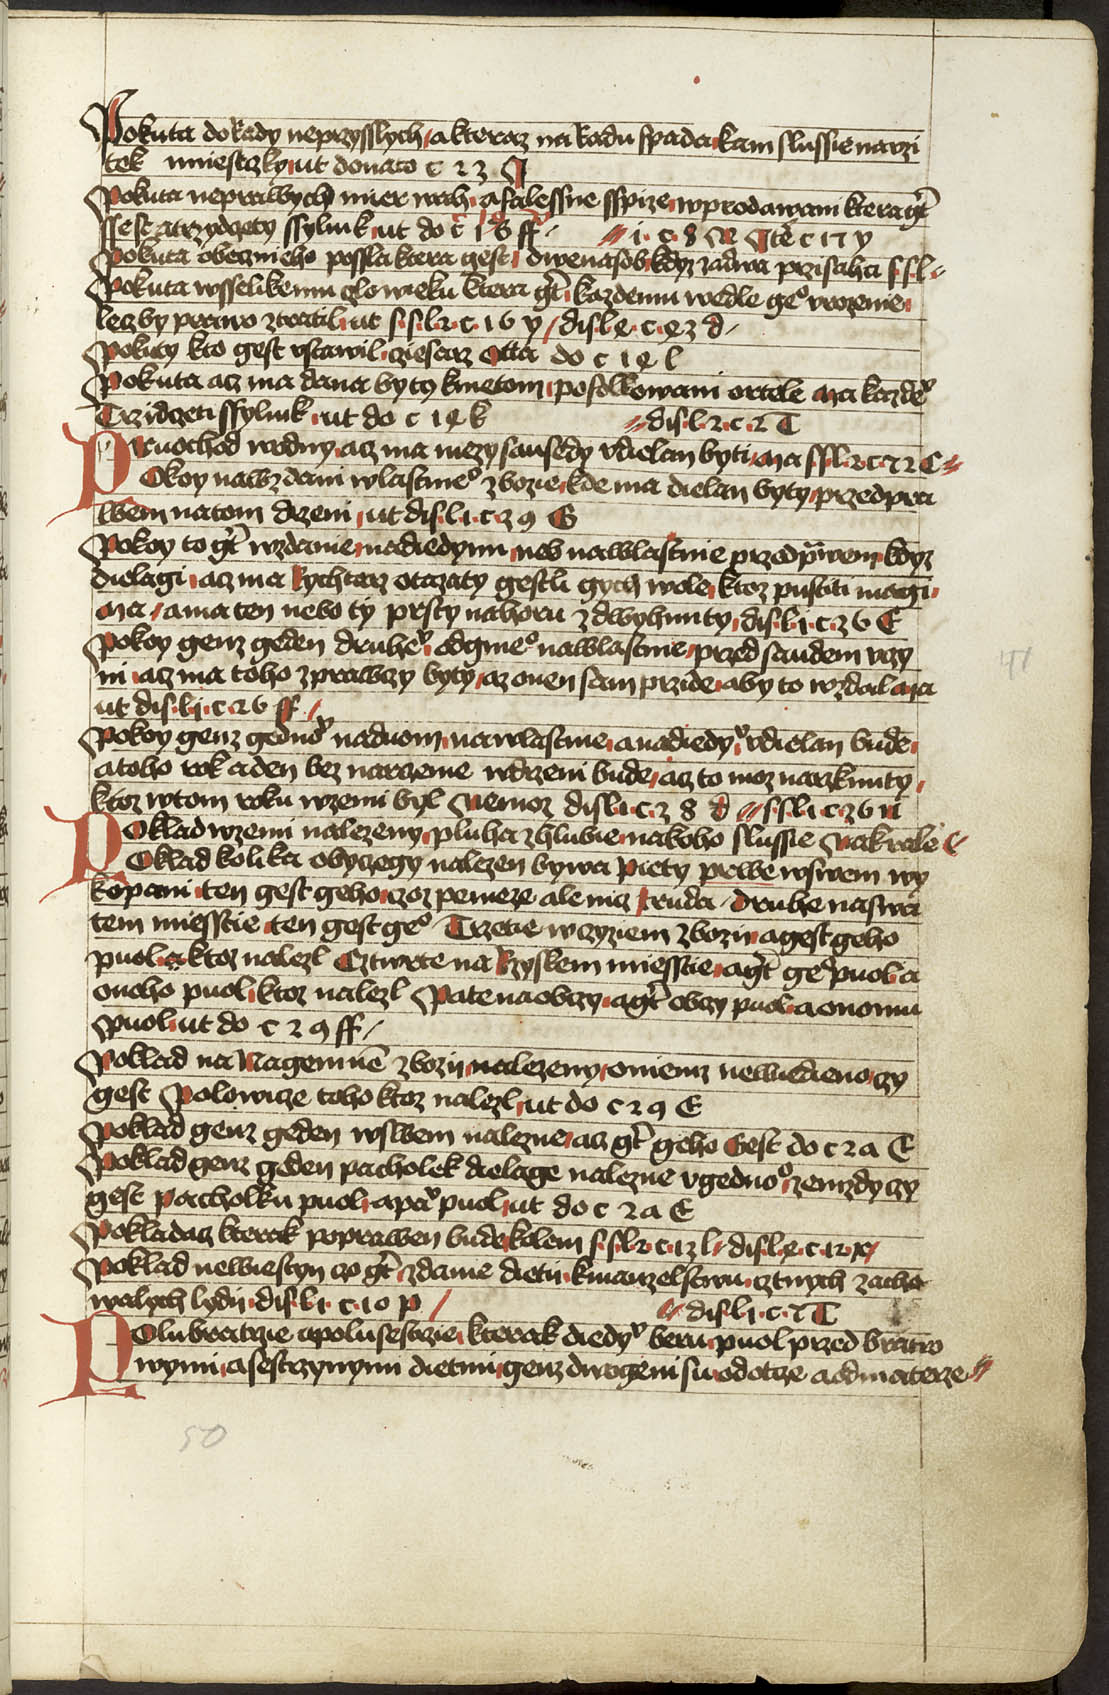 Pokuta do Rady neprzysslych a kteraz na Radu spada kam slussie narzi
tek mniestzky ut donato c 23 J
Pokuta neprawych mier wah a falessne sspize w prodawani ktera gt̄
ssest a trzydczety ssyluk ut do c 18 ff i c 8 Itē c 17 y
Pokuta obecznieho possla ktera gest dwenasob kdyz zadwa przisaha s s l
Pokuta wsselikemu czlowieku ktera gt̄ kazdemu wedle geo urozenie
lecz by prawo ztratil ut s s l 2 c 16 y dis l 4 c 43 d
Pokuty kto gest ustawil cziesarz Otta do c 14 l
Pokuta acz ma dana byty kmetom posilkowani ortele Ma kazde
Trzidczeti ssyluk ut do c 14 k dis l 2 c 2 T
Pruochod wodny acz ma mezy sausedy udielan byti Ma s s l 2 c 72 C
Pokoy na wzdani wlastnieo zbozie kde ma dielan byty przed pra
wem na tom drzeni ut dis l 1 c 29 G
Pokoy to gt̄ wzdanie na diedynu neb na wlastnie przed prawem kdyz
dielagi acz ma Rychtarz otazaty gestli gych wole ktoz pustiti magi
Ma a ma ten nebo ty prsty nahoru zdwyhnuty dis l 1 c 26 E
Pokoy genz geden druhe odgine na wlastnie przed saudem uczy
ni acz ma toho zprawczy byty az onen sam przide aby to wzdal Ma
ut dis l 1 c 26 ff
Pokoy genz gedno na duom na wlastnie a na diedy udielan bude
a toho rok a den bez narczenie w drzeni bude acz to moz narzknuty
ktoz w tom roku w zemi byl Nemoz dis l 1 c 28 d s s l 1 c 36 n
Poklad w zemi nalezeny pluha zhlubie na koho slussie Na krale
Poklad kolika obyczegy nalezen bywa Piety prwe w swem wy
kopani ten gest geho czoz penieze ale nicz Ruda druhe na swa
tem miesstie ten gest geo Trzetie w czyziem zbozii a gest geho
puol a ktoz nalezl Cztwrte na Rzyskem miesstie a gt̄ geo puol a
onoho puol ktoz nalezl Pate na obczy a gt̄ obczy puol a onomu
puol ut do c 29 ff
Poklad na Nagemnē zbozii nalezeny o niemz newiedieno czy
gest Polowicze toho ktoz nalezl ut do c 29 E
Poklad genz geden w swem nalezne acz gt̄ geho Gest do c 2a E
Poklad genz geden pacholek dielage nalezne u gedno zemzdy czy
gest pacholku puol a pa puol ut do c 2a E
Pokladacz kterak poprawen bude kolem s s l 2 c 13 l dis l 4 c 12 p
Poklad newiestyn czo gt̄ zdanie dietii k manzelstwu cztnych zacho
walych lydii dis l 1 c 10 p dis l 1 c 7 T
Polubratrzie a polusestrzie kterak diedy beru puol przed bratro
wymi a sestrzynymi dietmi genz dwogeni su od otcze a od materze
41
50